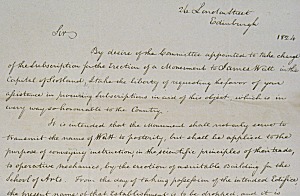 24 London Street
Edinburgh
1824
Sir
By desire of the Committee appointed to take charge
of the Subscription for the Erection of a Monument to James Watt in the
Capital of Scotland, I take the liberty of requesting the favor of your
assistance in procuring Subscriptions in aid of this object, which is in
every way so honorable to the Country.
It is intended that the Monument shall not only serve to
transmit the name of Watt to posterity, but shall be applied to the
purpose of conveying instruction in the scientific principles of their trades,
to operative Mechanics, by the erection of a suitable Building for the
School of Arts. From the day of taking possession of the intended Edifice
the present name of that Establishment is to be dropped, and it is